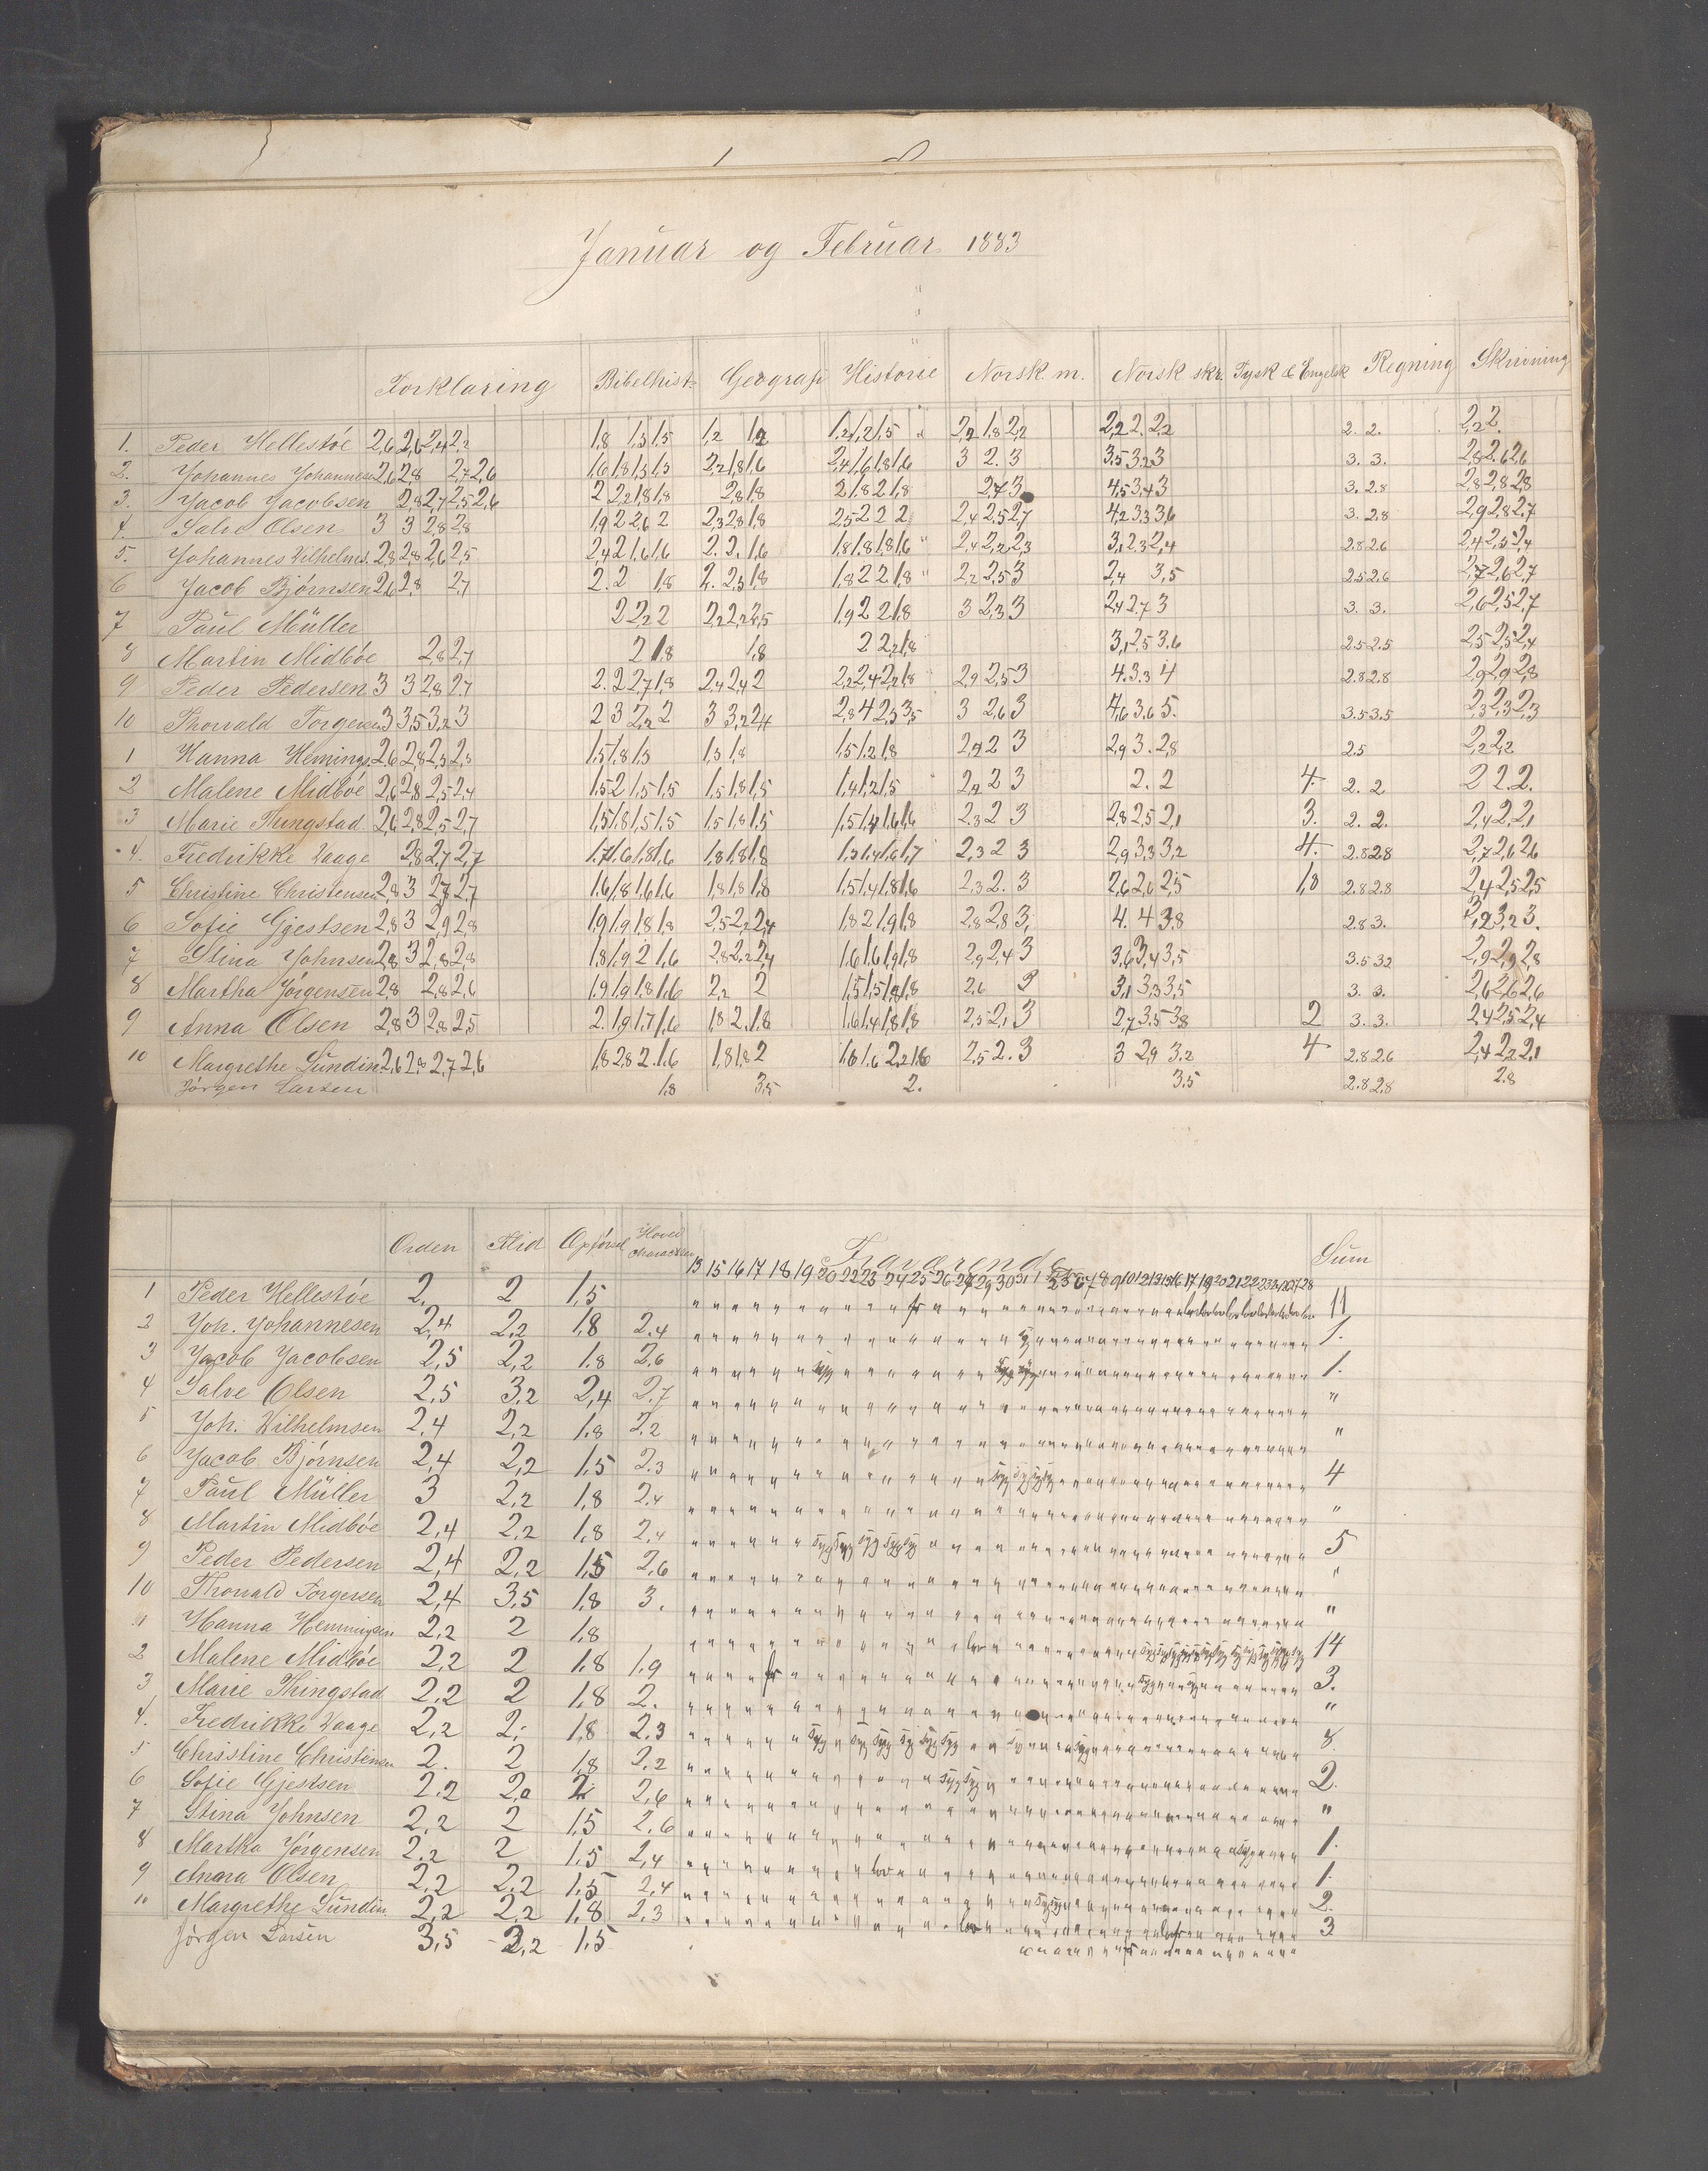 Januar og Februar 1883
Forklaring Bibelhist. Geografi Historie Norsk m. Norsk skr. Tysk & Engelsk Regning Skrivning
1. Peder Hellestöe 2,6 2,6 2,4 2,2 1,8 1,3 1,5 1,2 1,2 1,2 1,2 1,5 2,2 1,8 2,2 2,2 2. 2,2 2. 2. 2,2 2.
2. Johannes Johannesen 2,6 2,8 2,7 2,6 1,6 1,8 1,3 1,5 2,2 1,8 1,6 2,4 1,6 1,8 1,6 3 2. 3 3,5 3,2 3 3. 3. 2,8 2,6 2,6
3. Jacob Jacobsen 2,8 2,7 2,5 2,6 2 2,2 1,8 1,8 2,8 1,8 2 1,8 2 1,8 2,7 3 4,5 3,4 3 3. 2.8 2,8 2,8 2,8
4. Salve Olsen 3 3 2,8 2,8 1,9 2 2,6 2 2,3 2,8 1,8 2,5 2 2 2 2,4 2,5 2,7 4,2 3,3 3,6 3. 2,8 2,9 2,8 2,7
5. Johannes Vilhelms. 2,8 2,8 2,6 2,5 2,4 2 1,6 1,6 2. 2. 1,6 1,8 1,8 1,8 1,6 2,4 2,2 2,3 3,1 2,3 2,4 2.8 2.6 2,4 2,5 2,4
6 Jacob Bjørnsen 2,6 2,8 2,7 2. 2 1,8 2. 2,3 1,8 1,8 2 2 1,8 2,2 2,5 3 2,4 3,5 2.5 2.6 2,7 2,6 2,7
7 Paul Müller 2 2,2 2 2,2 2,2 2,5 1,9 2 2 1,8 3 2,3 3 2,4 2,7 3 3. 3. 2,6 2,5 2,7
8 Martin Midböe 2,8 2,7 2 1,8 1,8 2 2,2 1,8 3,1 2,5 3,6 2.5 2.5 2,5 2,5 2,4
9 Peder Pedersen 3 3 2,8 2,7 2. 2 2,7 1,8 2,4 2,4 2 2,2 2,4 2,2 1,8 2,9 2,5 3 4. 3.3 4 2.8 2.8 2,9 2,9 2,8
10 Thorvald Torgersen 3 3,5 3,2 3 2 3 2,2 2 3 3,2 2,4 2,8 4 2,3 3,5 3 2,6 3 4,6 3,6 5. 3.5 3.5 2,3 2,3 2,3
1 Hanna Hemings. 2,6 2,8 2,3 2,3 1,5 1,8 1,3 1,3 1,8 1,5 1,2 1,8 2,2 2 3 2,9 3. 2,8 2.5 2,2 2,2
2 Malene Midböe 2,6 2,8 2,5 2,4 1,5 2 1,5 1,5 1,5 1,8 1,5 1,4 1,2 1,5 2,2 2 3 2. 2 4. 2. 2 2 2. 2.
3 Marie Thingstad. 2,6 2,8 2,5 2,7 1,5 1,8 1,5 1,5 1,5 1,8 1,5 1,5 1,4 1,6 1,6 2,3 2 3 2,8 2,5 2,1 3. 2. 2. 2,4 2,2 2,1
4. Fredrikke Vaage 2,8 2,7 2,7 1,7 1,6 1,8 1,6 1,8 1,8 1,8 1,3 1,4 1,6 1,7 2,3 2 3 2,9 3,3 3,2 4. 2.8 2.8 2,7 2,6 2,6
5 Christine Christensen 2,8 3 2,7 2,7 1,6 1,8 1,6 1,6 1,8 1,8 1,8 1,5 1,4 1,8 1,6 2,3 2. 3 2,6 2,6 2,5 1,8 2.8 2.8 2,4 2,5 2,5
6 Sofie Gjestsen 2,8 3 2,9 2,8 1,9 1,9 1,8 1,8 2,5 2,2 2,4 1,8 2 1,9 1,8 2,8 2,8 3, 4. 4 3,8 2.8 3. 3,2 3.
7 Stina Johnsen 2,8 3 2,8 2,8 1,8 1,9 2 1,6 2,8 2,2 2,4 1,6 1,6 1,9 1,8 2,9 2,4 3 3,6 3,4 3,5 3.5 3.2 2,9 2,9 2,8
8 Martha Jörgensen 2,8 2,8 2,6 1,9 1,9 1,8 1,6 2,2 2 1,5 1,5 1,8 1,8 2,6 3 3,1 3,3 3,5 3. 3. 2,6 2,6 2,6
9 Anna Olsen 2,8 3 2,8 2,5 2. 1,9 1,7 1,6 1,8 2. 1,8 1,6 1,4 1,8 1,8 2,5 2,1 3 2,7 3,5 3,8 2 3. 3. 2,4 2,5 2,4
10 Margrethe Sundin 2,6 2,8 2,7 2,6 1,8 2,8 2. 1.6 1,8 1,8 2 1,6 1,6 2,2 1,6 2,5 2. 3 3 2,9 3.2 4 2.8 2.6 2,4 2,2 2,1
Jörgen Larsen 1,8 3,5 2. 3.5 2.8 2.8 2.8
Orden Flid Opförsel Hoved Charakter Fraværende Sum
13 15 16 17 18 19 20 22 23 24 25 26 27 29 30 31 1 2 3 6 7 8 9 10 12 13 15 16 17 19 20 21 22 23 24 26 27 28
1 Peder Hellestöe 2. 2 1,5 11
2 Joh. Johannesen 2,4 2,2 1,8 2.4 1.
3 Jacob Jacobsen 2,5 2,2 1.8 2,6 1.
4 Salve Olsen 2,5 3,2 2,4 2,7 "
5 Joh. Wilhelmsen 2,4 2,2 1,8 2.2 "
6 Jacob Bjørnsen 2,4 2,2 1,5 2.3 4
7 Paul Müller 3 2,2 1,8 2.4 "
8 Martin Midböe 2,4 2,2 1,8 2,4 5
9 Peder Pedersen 2,4 2,2 1,5 2,6 "
10 Thorvald Torgersen 2,4 3,5 1,8 3. "
1 Hanna Hemmingsen 2,2 2 1,8 14
2 Malene Midböe 2,2 2 1,8 1,9 3.
3 Marie Thingstad 2,2 2 1,8 2. "
4. Fredrikke Vaage 2,2 2. 1,8 2,3 8
5 Christine Christensen 2. 2 1,8 2.2 2.
6 Sofie Gjestsen 2,2 2 2,6 "
7 Stina Johnsen 2,2 2 1,5 2,6 1.
8 Martha Jörgensen 2,2 2 1,5 2,4 1.
9 Anna Olsen 2,2 2,2 1,5 2,4 2.
10 Margrethe Sundin 2,2 2,2 1,8 2,3 3
Jörgen Larsen 3,5 3,2 1,5